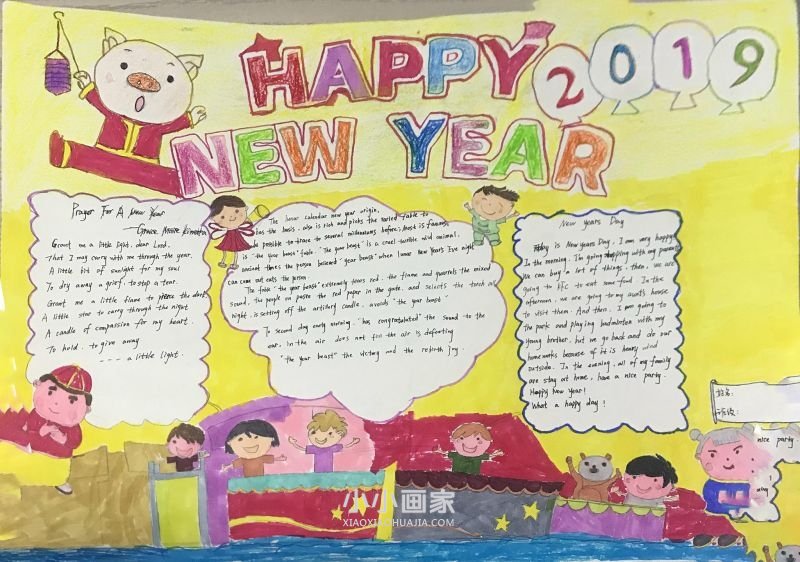 HAPPY 2019
NEW YEAR
Prayer For A New Year
Grant me a little light, dear Lord,
That I may carry with me through the year.
A little bit of sunlight for my soul
To dry away a grief, to stop a tear.
Grant me a little flame to pierce the dark
A little star to carry through the night
A candle of compassion for my heart.
To hold, to give away
---- a little light.
The lunar calendar new year origin,
has the basis, also is rich and picks the varied fable to
be possible to trace to several millenniums before; most is famous,
is "the year beast" fable. "The year beast" is a cruel terrible wild animal,
ancient times the person believed "year beast" when lunar New Year's Eve night
can come out eats the person
The fable "the year beast" extremely fears red, the flame and quarrels the mixed
sound, the people on paste the red paper in the gate, and selects the torch all
night, is setting off the artillery candle, avoids "the year beast".
To second day early morning, "has congratulated" the sound to the
ear, in the air does not fill the air is defeating
"the year beast" the victory and the rebirth joy.
New Years Day
Today is New Years Day, I am very happy
In the morning, I'm going shopping with my parents
We can buy a lot of things, then, we are
going to KFC to eat some food. In the
afternoon, we are going to my aunt's house
to visit them. And then, I am going to
the park and playing badminton with my
young brother, but we go back and do our
homeworks because of it is heavy wind
outside. In the evening, all of my family
are stay at home, have a nice party.
Happy New Year!
What a happy day!
姓名:
班级:
nice party
小小画家
XIAOXIAOHUAJIA.COM